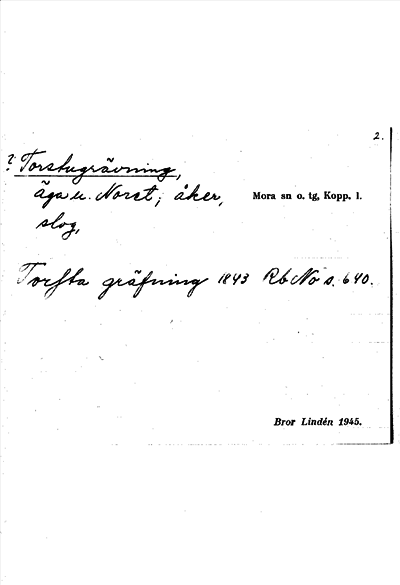 2.
? Torstugrävning,
äga u. Noret; åker,
Mora sn o. tg, Kopp. l.
slog,
Torsta gräfning 1843 Rb No s. 640.
Bror Lindén 1945.